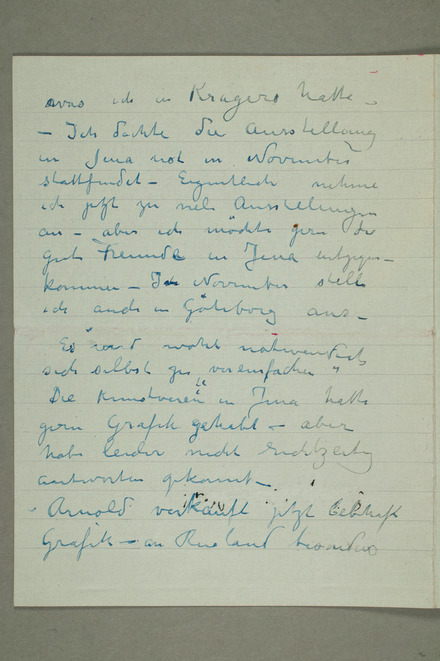 was ich in Kragerø hatte –
– Ich dachte die Ausstellung
in Jena not in November
stattfindet – Eigentlich nehme
ich jetzt zu viele Ausstellungen
an – aber ich möchte gern die
gute Freunde in Jena entgegen-
kommen – In November stelle
ich auch in Göteborg aus –
Es wird wohl notwendich
sich selbst zu vereinfachen"
Die Kunstverein in Jena hatte
gern Grafik gehabt – aber
habe leider nicht rechtzeitig
antworten gekonnt –
Arnold verkauft jetzt lebhaft
Grafik – an Rusland